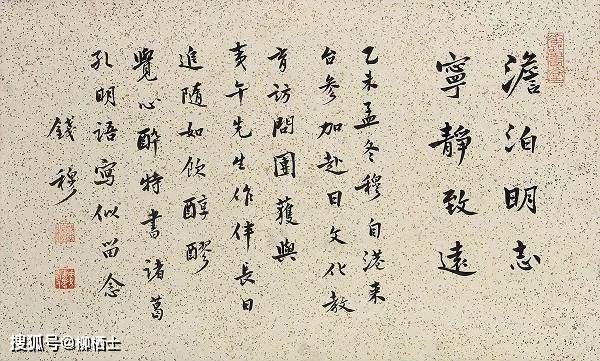 澹泊明志
寧靜致遠
乙未孟冬穆自港来
台參加赴日文化教
育訪問團獲與
夷午先生作伴長日
追隨如飲醇醪
覺心醉特書諸葛
孔明語寫似留念
錢穆
搜狐号@柳栖士